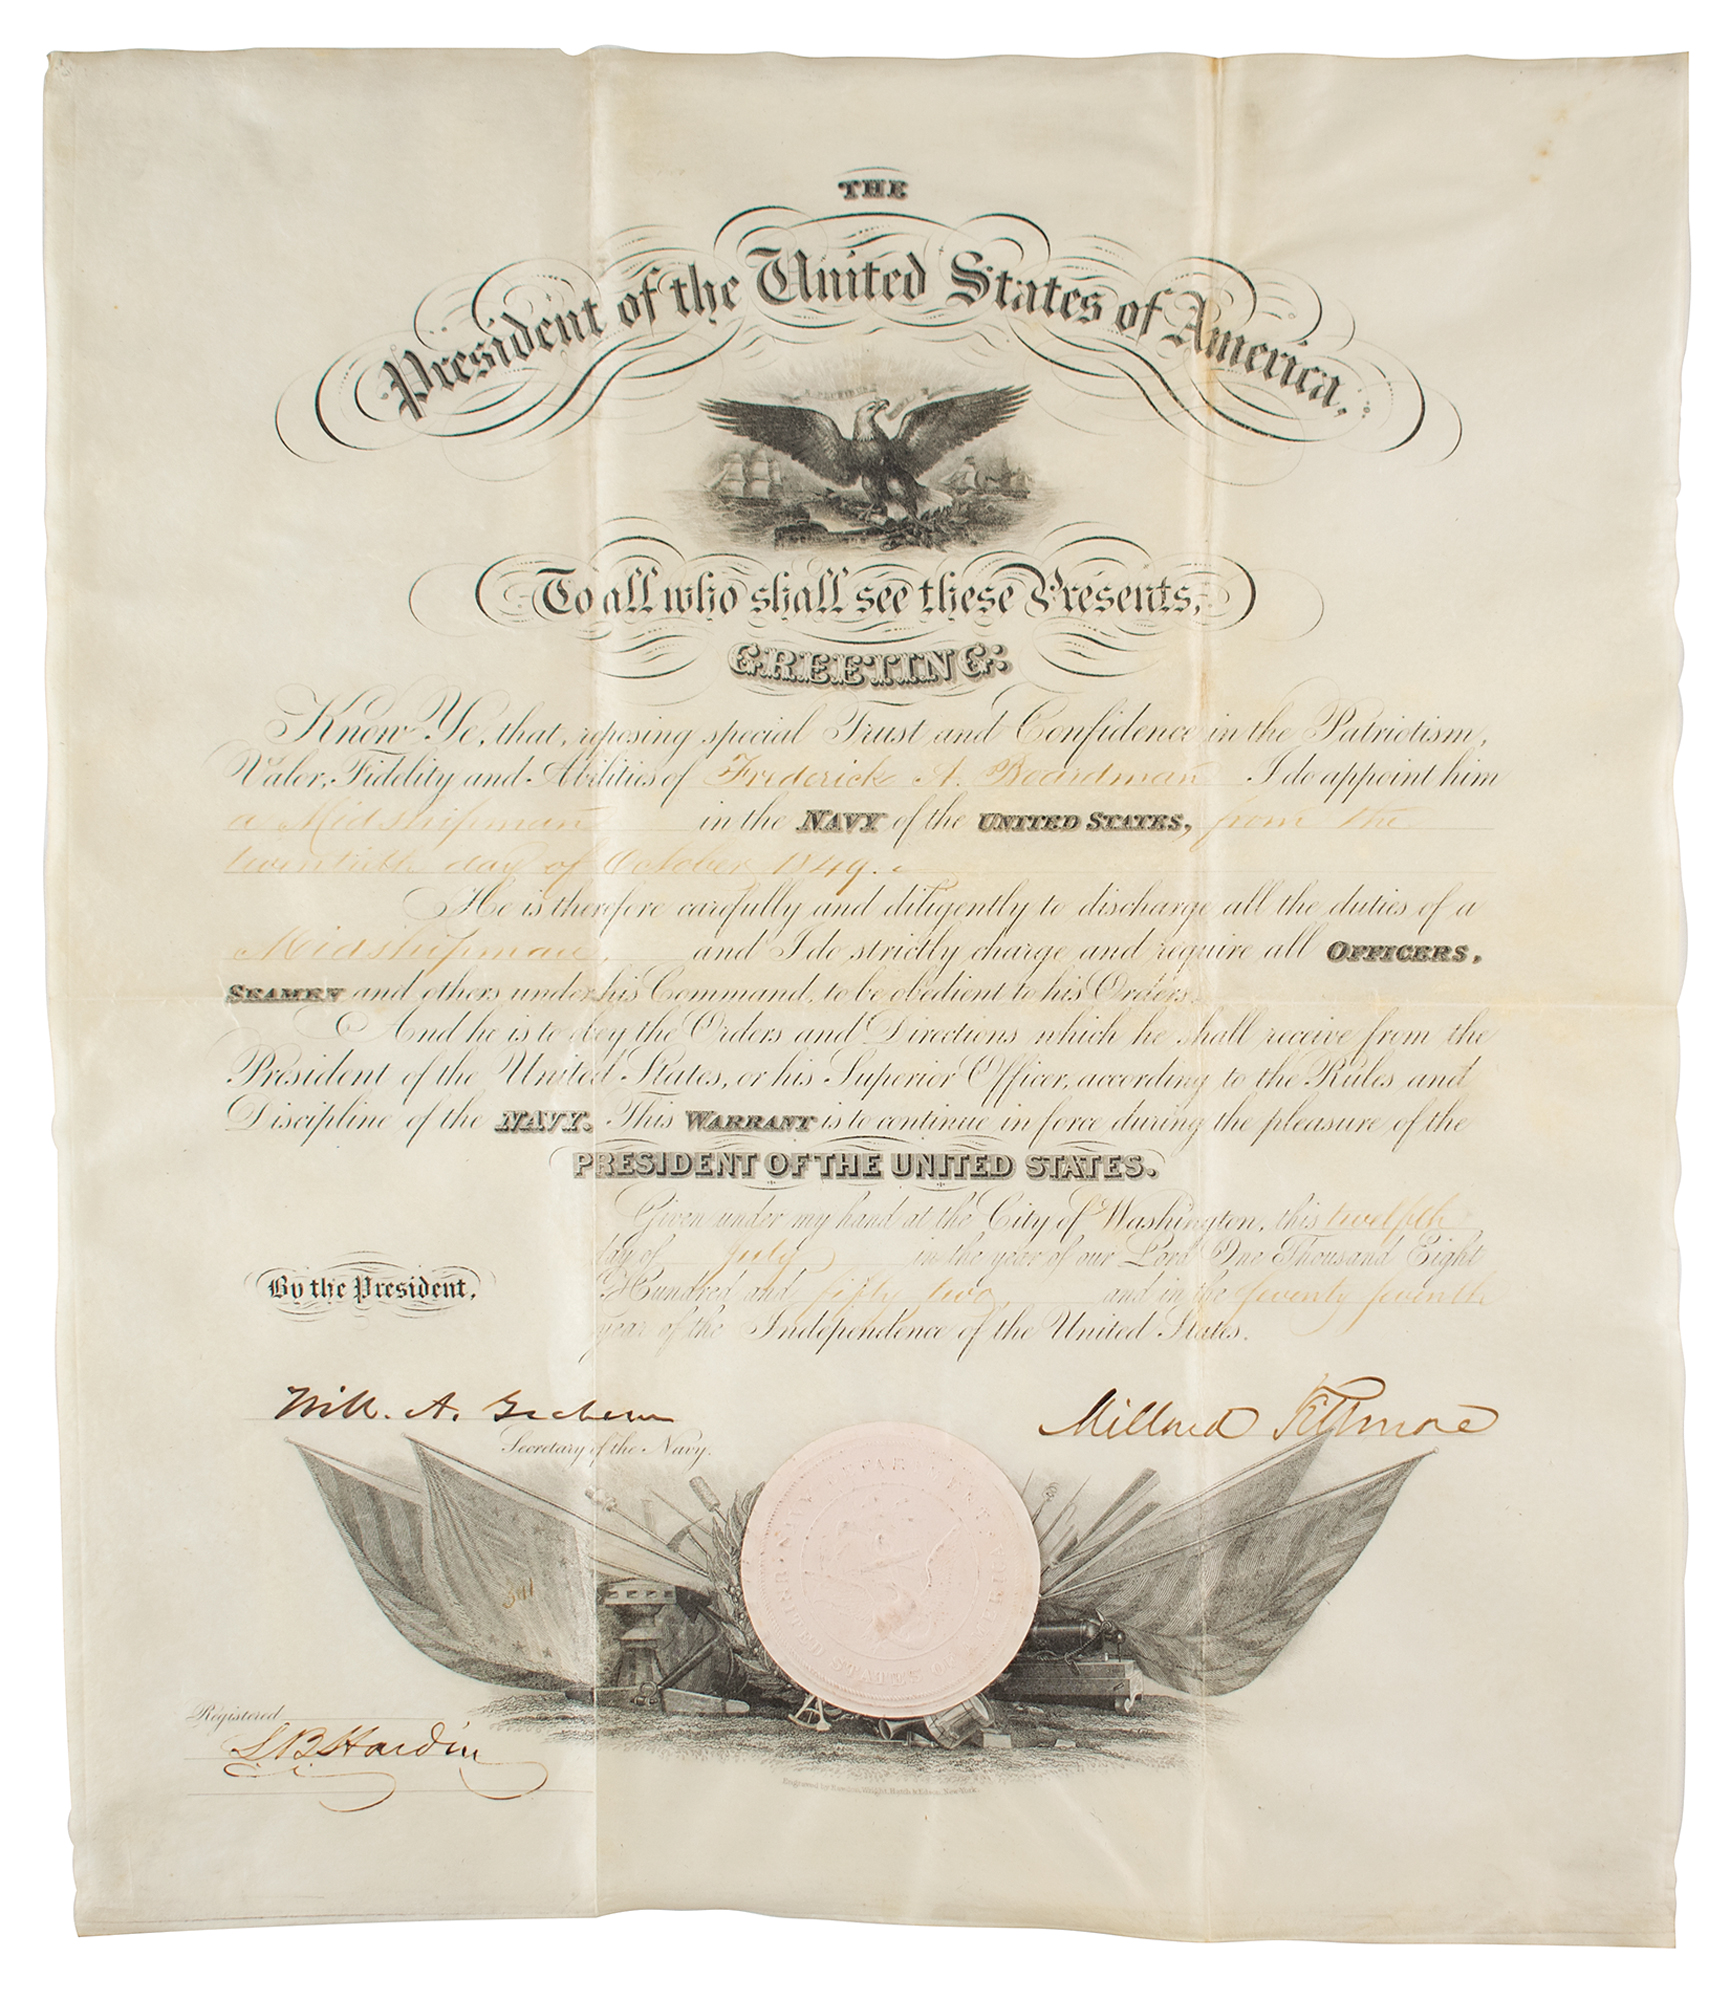 THE
President of the United States of America,
To all who shall see these Presents,
GREETING:
Know Ye, that, reposing special Trust and Confidence in the Patriotism,
Valor, Fidelity and Abilities of Frederick A. Boardman I do appoint him
a Midshipman in the NAVY of the UNITED STATES, from the
twentieth day of October 1849.
He is therefore carefully and diligently to discharge all the duties of a
Midshipman, and I do strictly charge and require all OFFICERS,
SEAMEN and others under his Command, to be obedient to his Orders.
And he is to obey the Orders and Directions which he shall receive from the
President of the United States, or his Superior Officer, according to the Rules and
Discipline of the NAVY. This WARRANT is to continue in force during the pleasure of the
PRESIDENT OF THE UNITED STATES.
Given under my hand at the City of Washington, this twelfth
day of July in the year of our Lord One Thousand Eight
Hundred and fifty two, and in the Seventy Seventh
year of the Independence of the United States.
By the President,
Will. A. Graham
Millard Fillmore
Secretary of the Navy.
NAVY DEPARTMENT
UNITED STATES OF AMERICA
341
Registered
L B Hardin
Engraved by Rawdon, Wright, Hatch & Edson, New York.